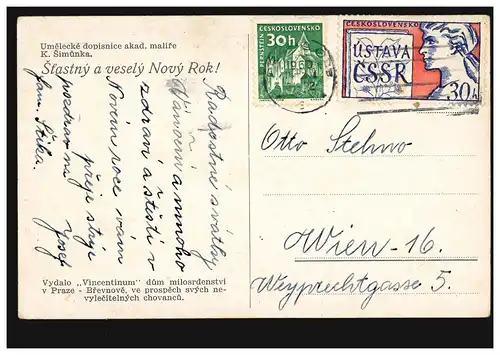 Umělecké dopisnice akad. malíře
K. Šimůnka.
Šťastný a veselý Nový Rok!
Radostné svátky
Vánoční a mnoho
zdraví a štěstí v
Novém roce vám
přeje strýc
Josef
pozdrav na
fam. Stika.
Vydalo „Vincentinum" dům milosrdenství
v Praze - Břevnově, ve prospěch svých ne-
vyléčitelných chovanců.
ČESKOSLOVENSKO
30h
PERNŠTEJN
ČESKOSLOVENSKO
ÚSTAVA
ČSSR
30h
Otto Stehno
Wien-16.
Weyprechtgasse 5.